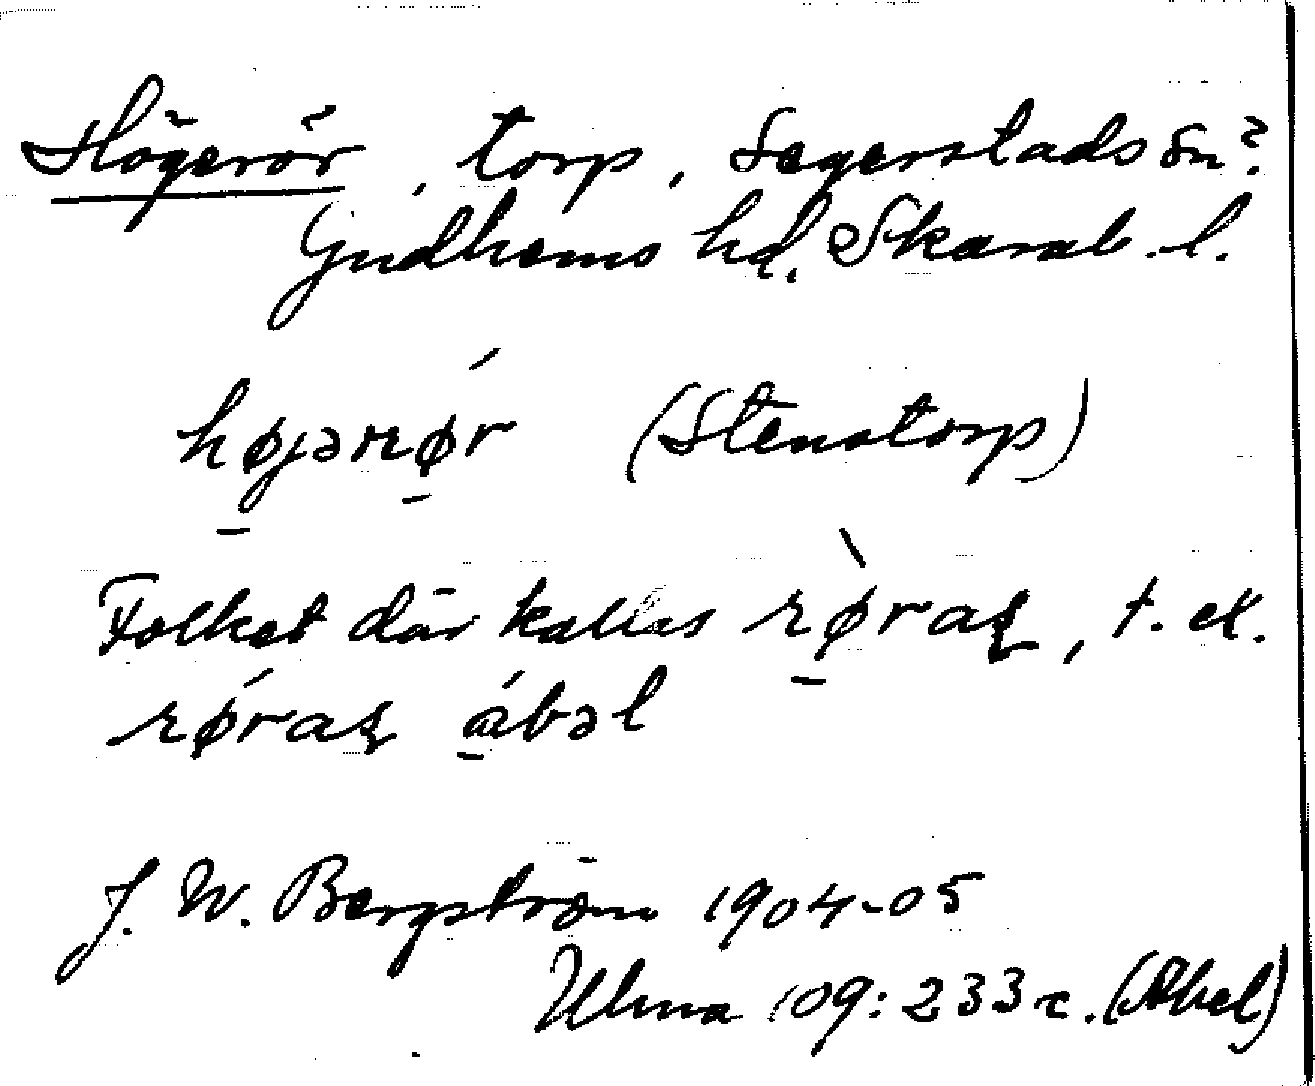 Högerör, torp, Segerstads sn?
Gudhems hd. Skarab. l.
højərør (Stenstorp)
Folket där kallas røraʀ, t. ex.
røraʀ ábəl
J. W. Bergström 1904-05
Ulma 109: 233 c. (Abel)